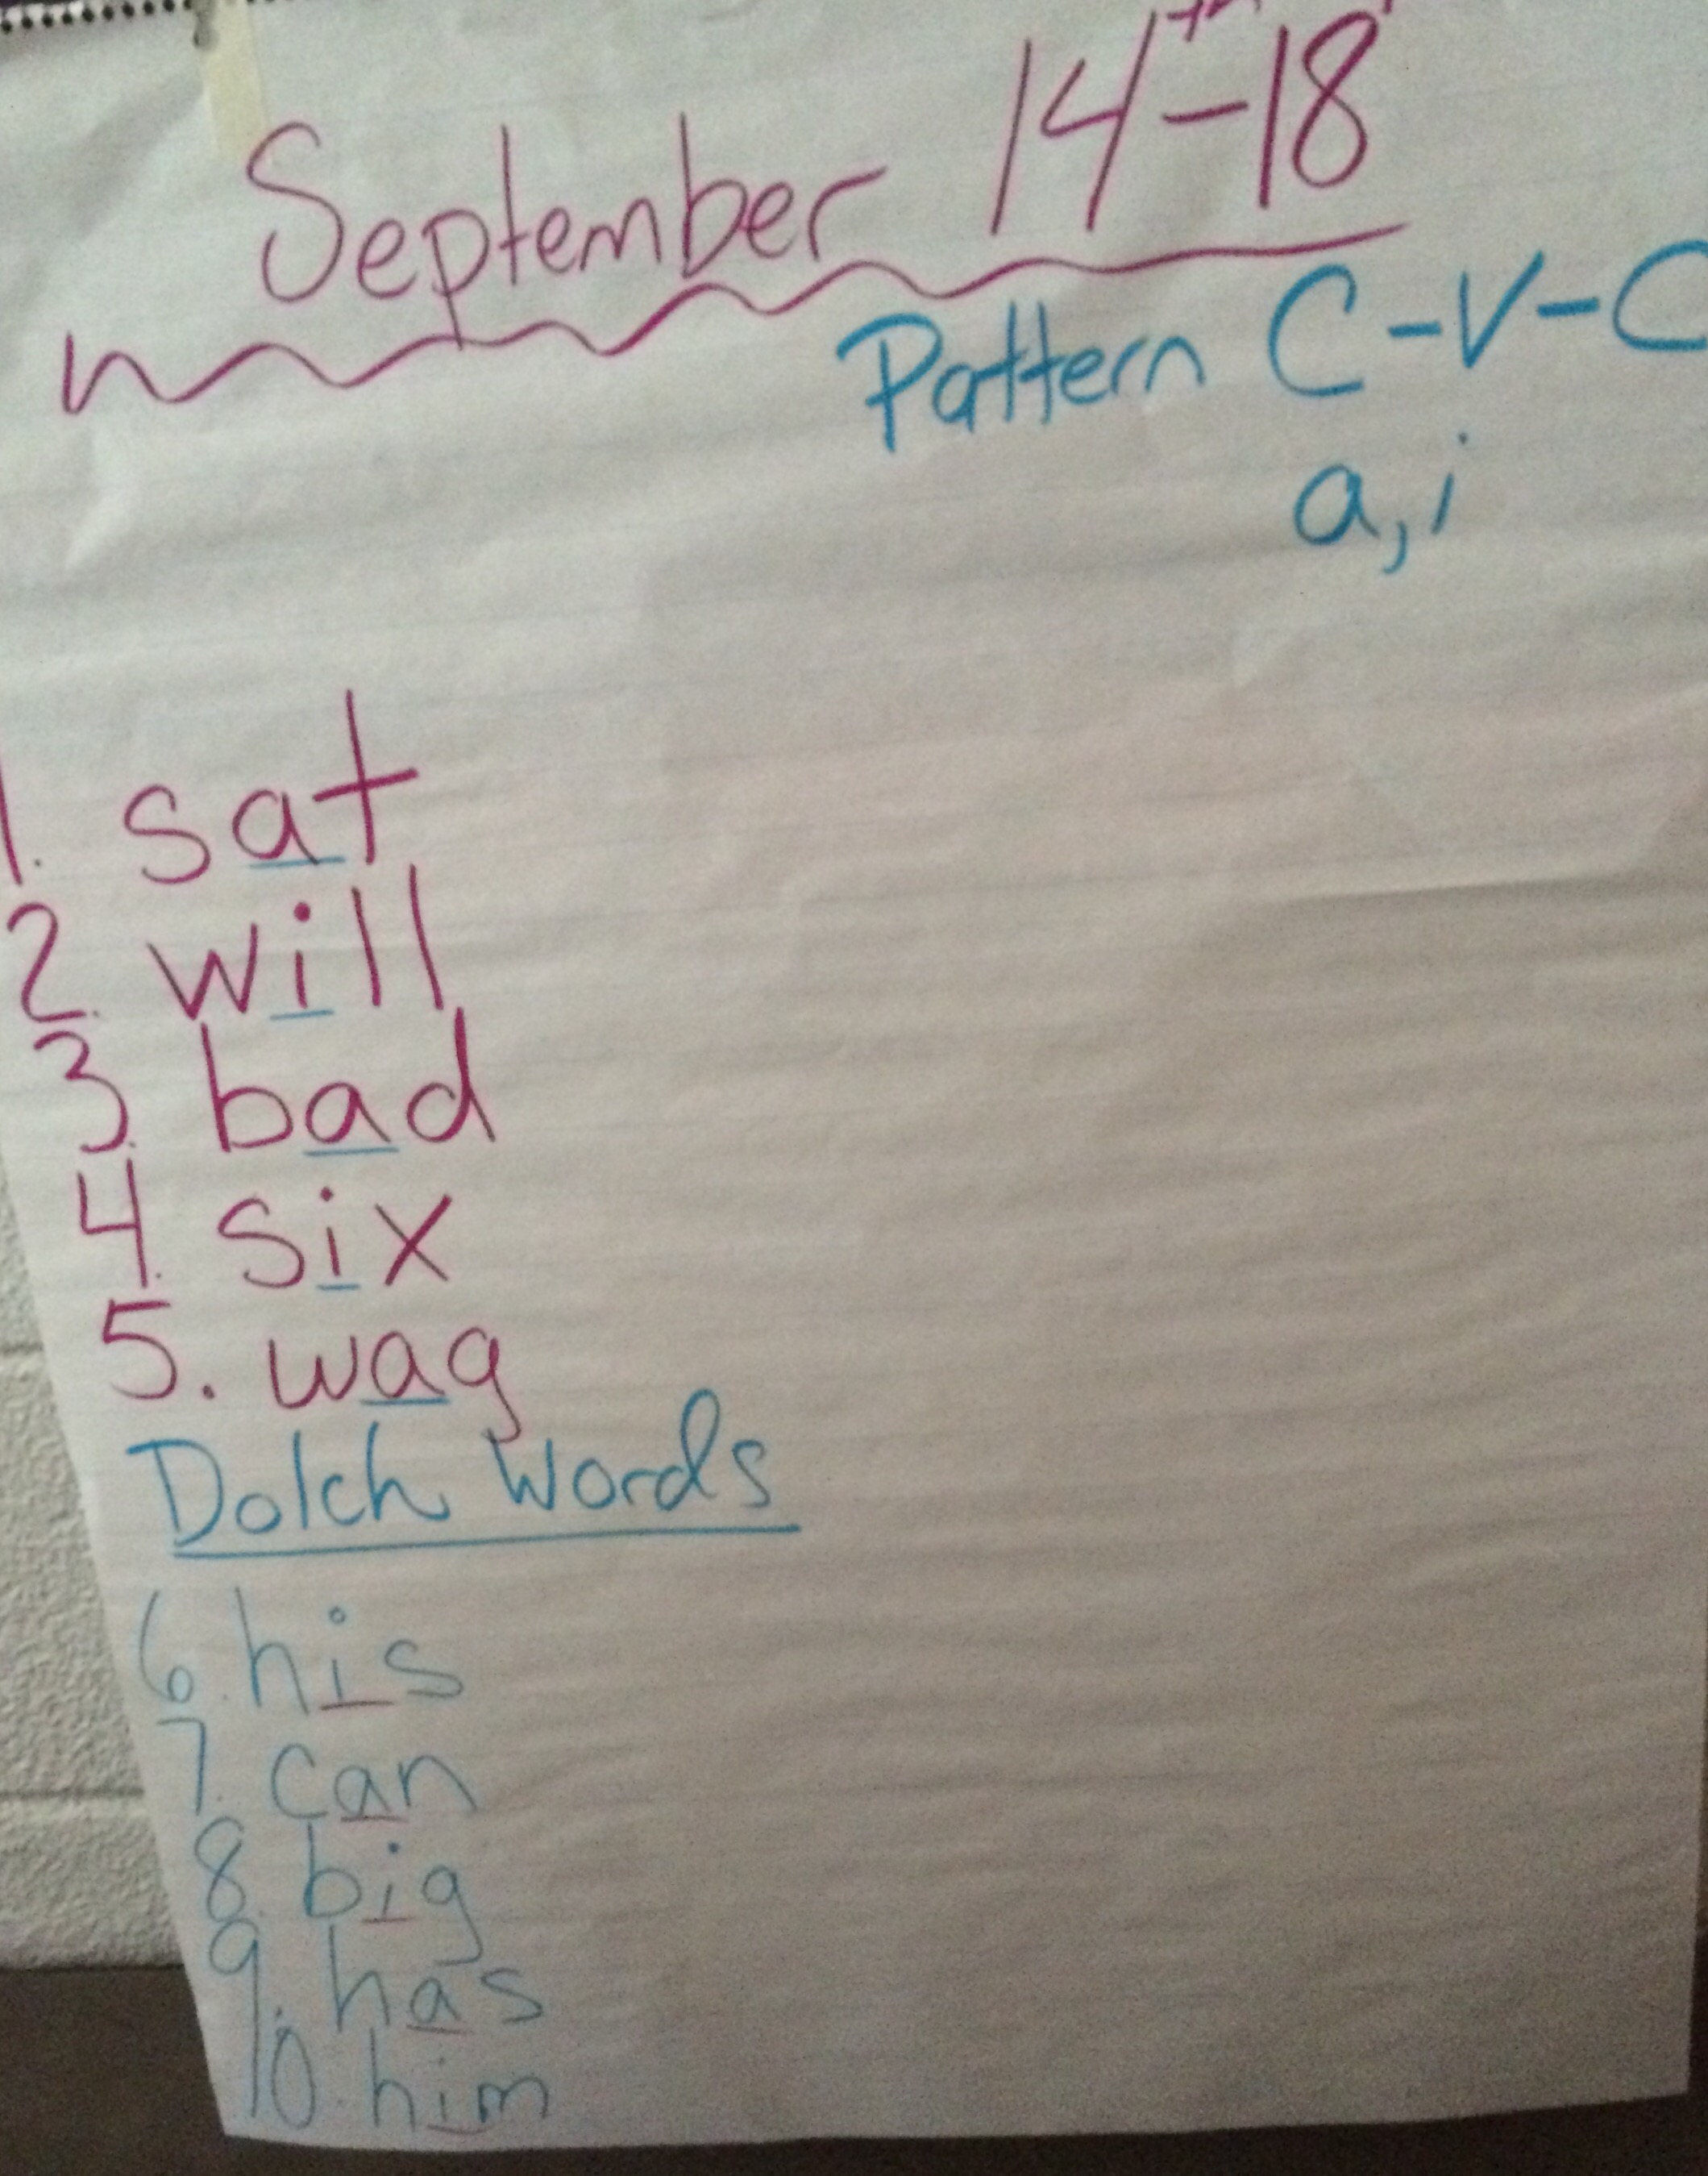 September 14th-18
Pattern C-V-C
a, i
1. sat
2. will
3. bad
4. six
5. wag
Dolch Words
6. his
7. can
8. big
9. has
10. him